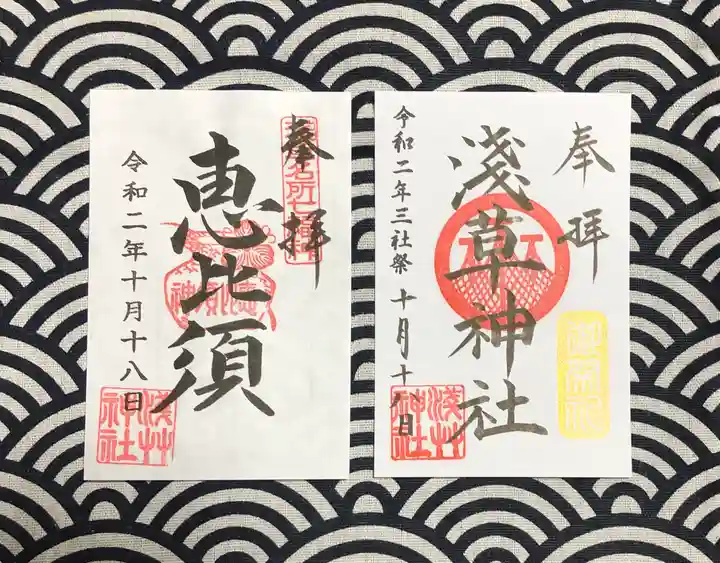 奉拝
恵比須
令和二年十月十八日
浅草神社
奉拝
淺草神社
令和二年三社祭十月十八日
浅草神社